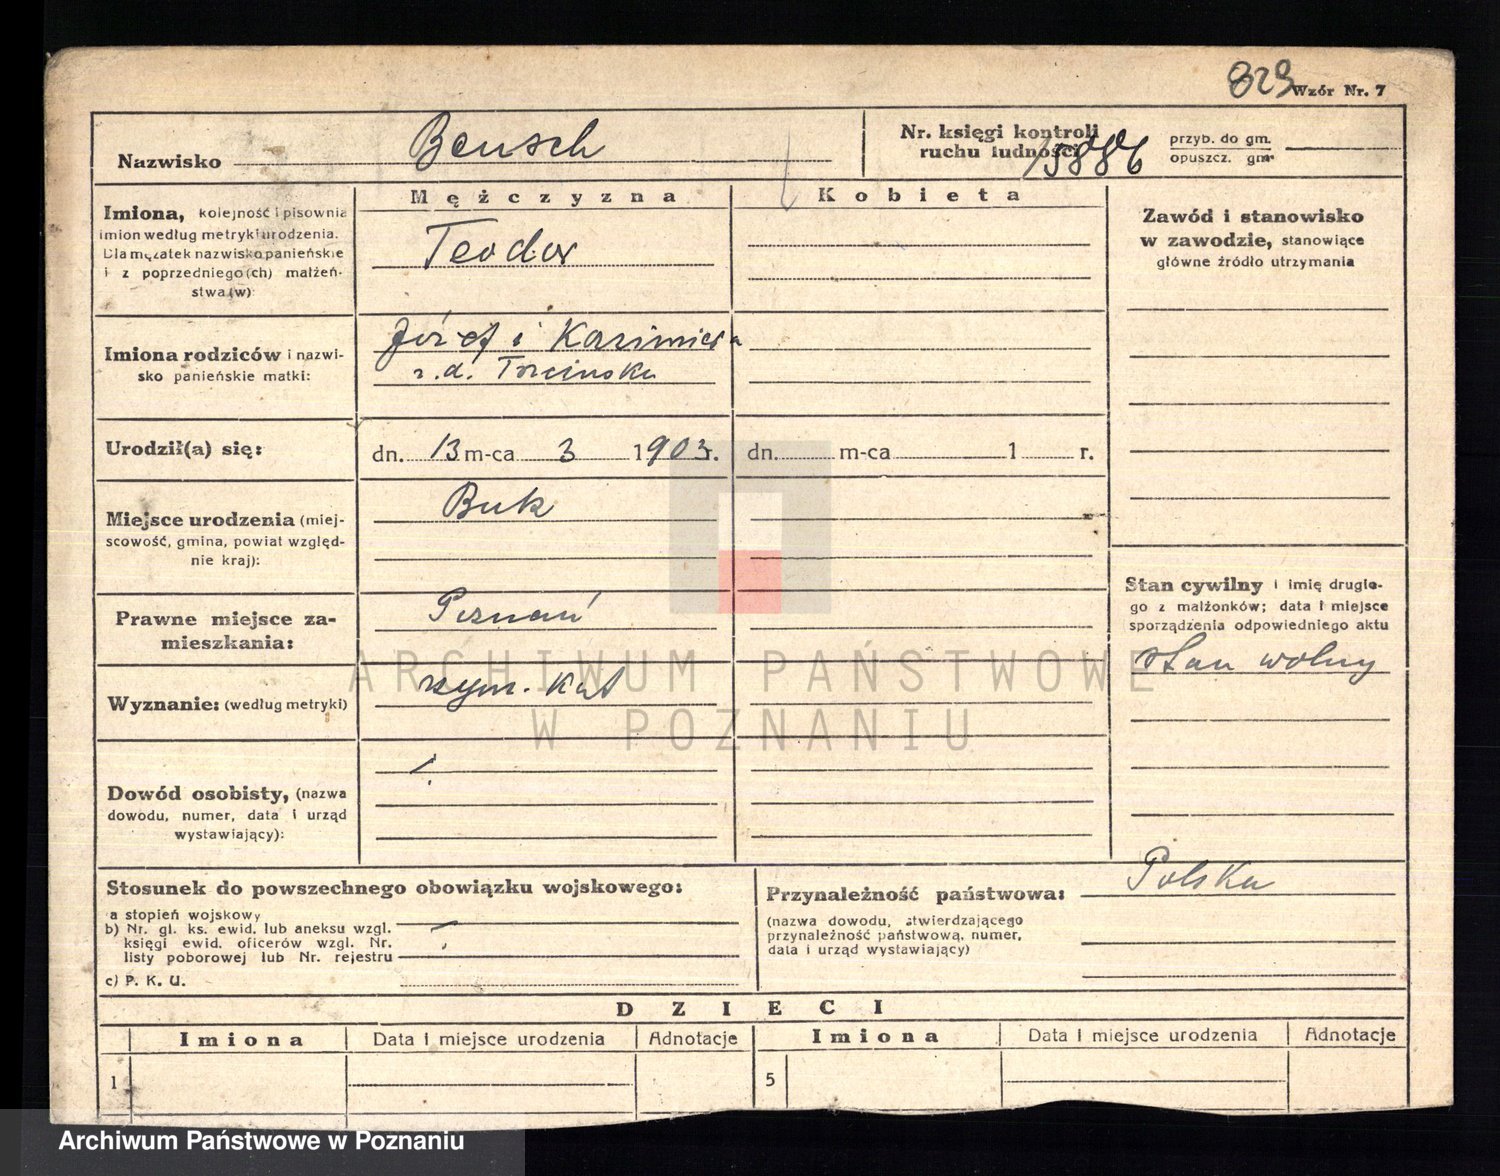 829 Wzór Nr. 7
Nazwisko Bensch
Nr. księgi kontroli
ruchu ludności 15886
przyb. do gm.
opuszcz. gm.
Mężczyzna Kobieta
Imiona, kolejność i pisownia
imion według metryki urodzenia.
Dla mężatek nazwisko panieńskie
i z poprzedniego(ch) małżeń-
stwa(w):
Teodor
Zawód i stanowisko
w zawodzie, stanowiące
główne źródło utrzymania
Imiona rodziców i nazwi-
sko panieńskie matki:
Józef i Kazimiera
z. d. Trzcińska
Urodził(a) się: dn. 13 m-ca 3 1903 r. dn. m-ca 1 r.
Miejsce urodzenia (miej-
scowość, gmina, powiat względ-
nie kraj):
Buk
Stan cywilny i imię drugie-
go z małżonków; data i miejsce
sporządzenia odpowiedniego aktu
stan wolny
Prawne miejsce za-
mieszkania:
Poznań
Wyznanie: (według metryki) rzym. kat
ARCHIWUM PAŃSTWOWE
W POZNANIU
Dowód osobisty, (nazwa
dowodu, numer, data i urząd
wystawiający):
Stosunek do powszechnego obowiązku wojskowego:
a stopień wojskowy
b) Nr. gł. ks. ewid. lub aneksu wzgl.
księgi ewid. oficerów wzgl. Nr.
listy poborowej lub Nr. rejestru
c) P. K. U.
Przynależność państwowa: Polska
(nazwa dowodu, stwierdzającego
przynależność państwową, numer,
data i urząd wystawiający)
DZIECI
Imiona Data i miejsce urodzenia Adnotacje Imiona Data i miejsce urodzenia Adnotacje
1 5
Archiwum Państwowe w Poznaniu